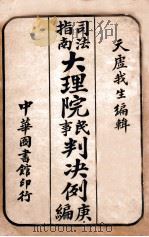 天虚我生編輯
司法指南
大理院民事判决例庚編
中華圖書館印行